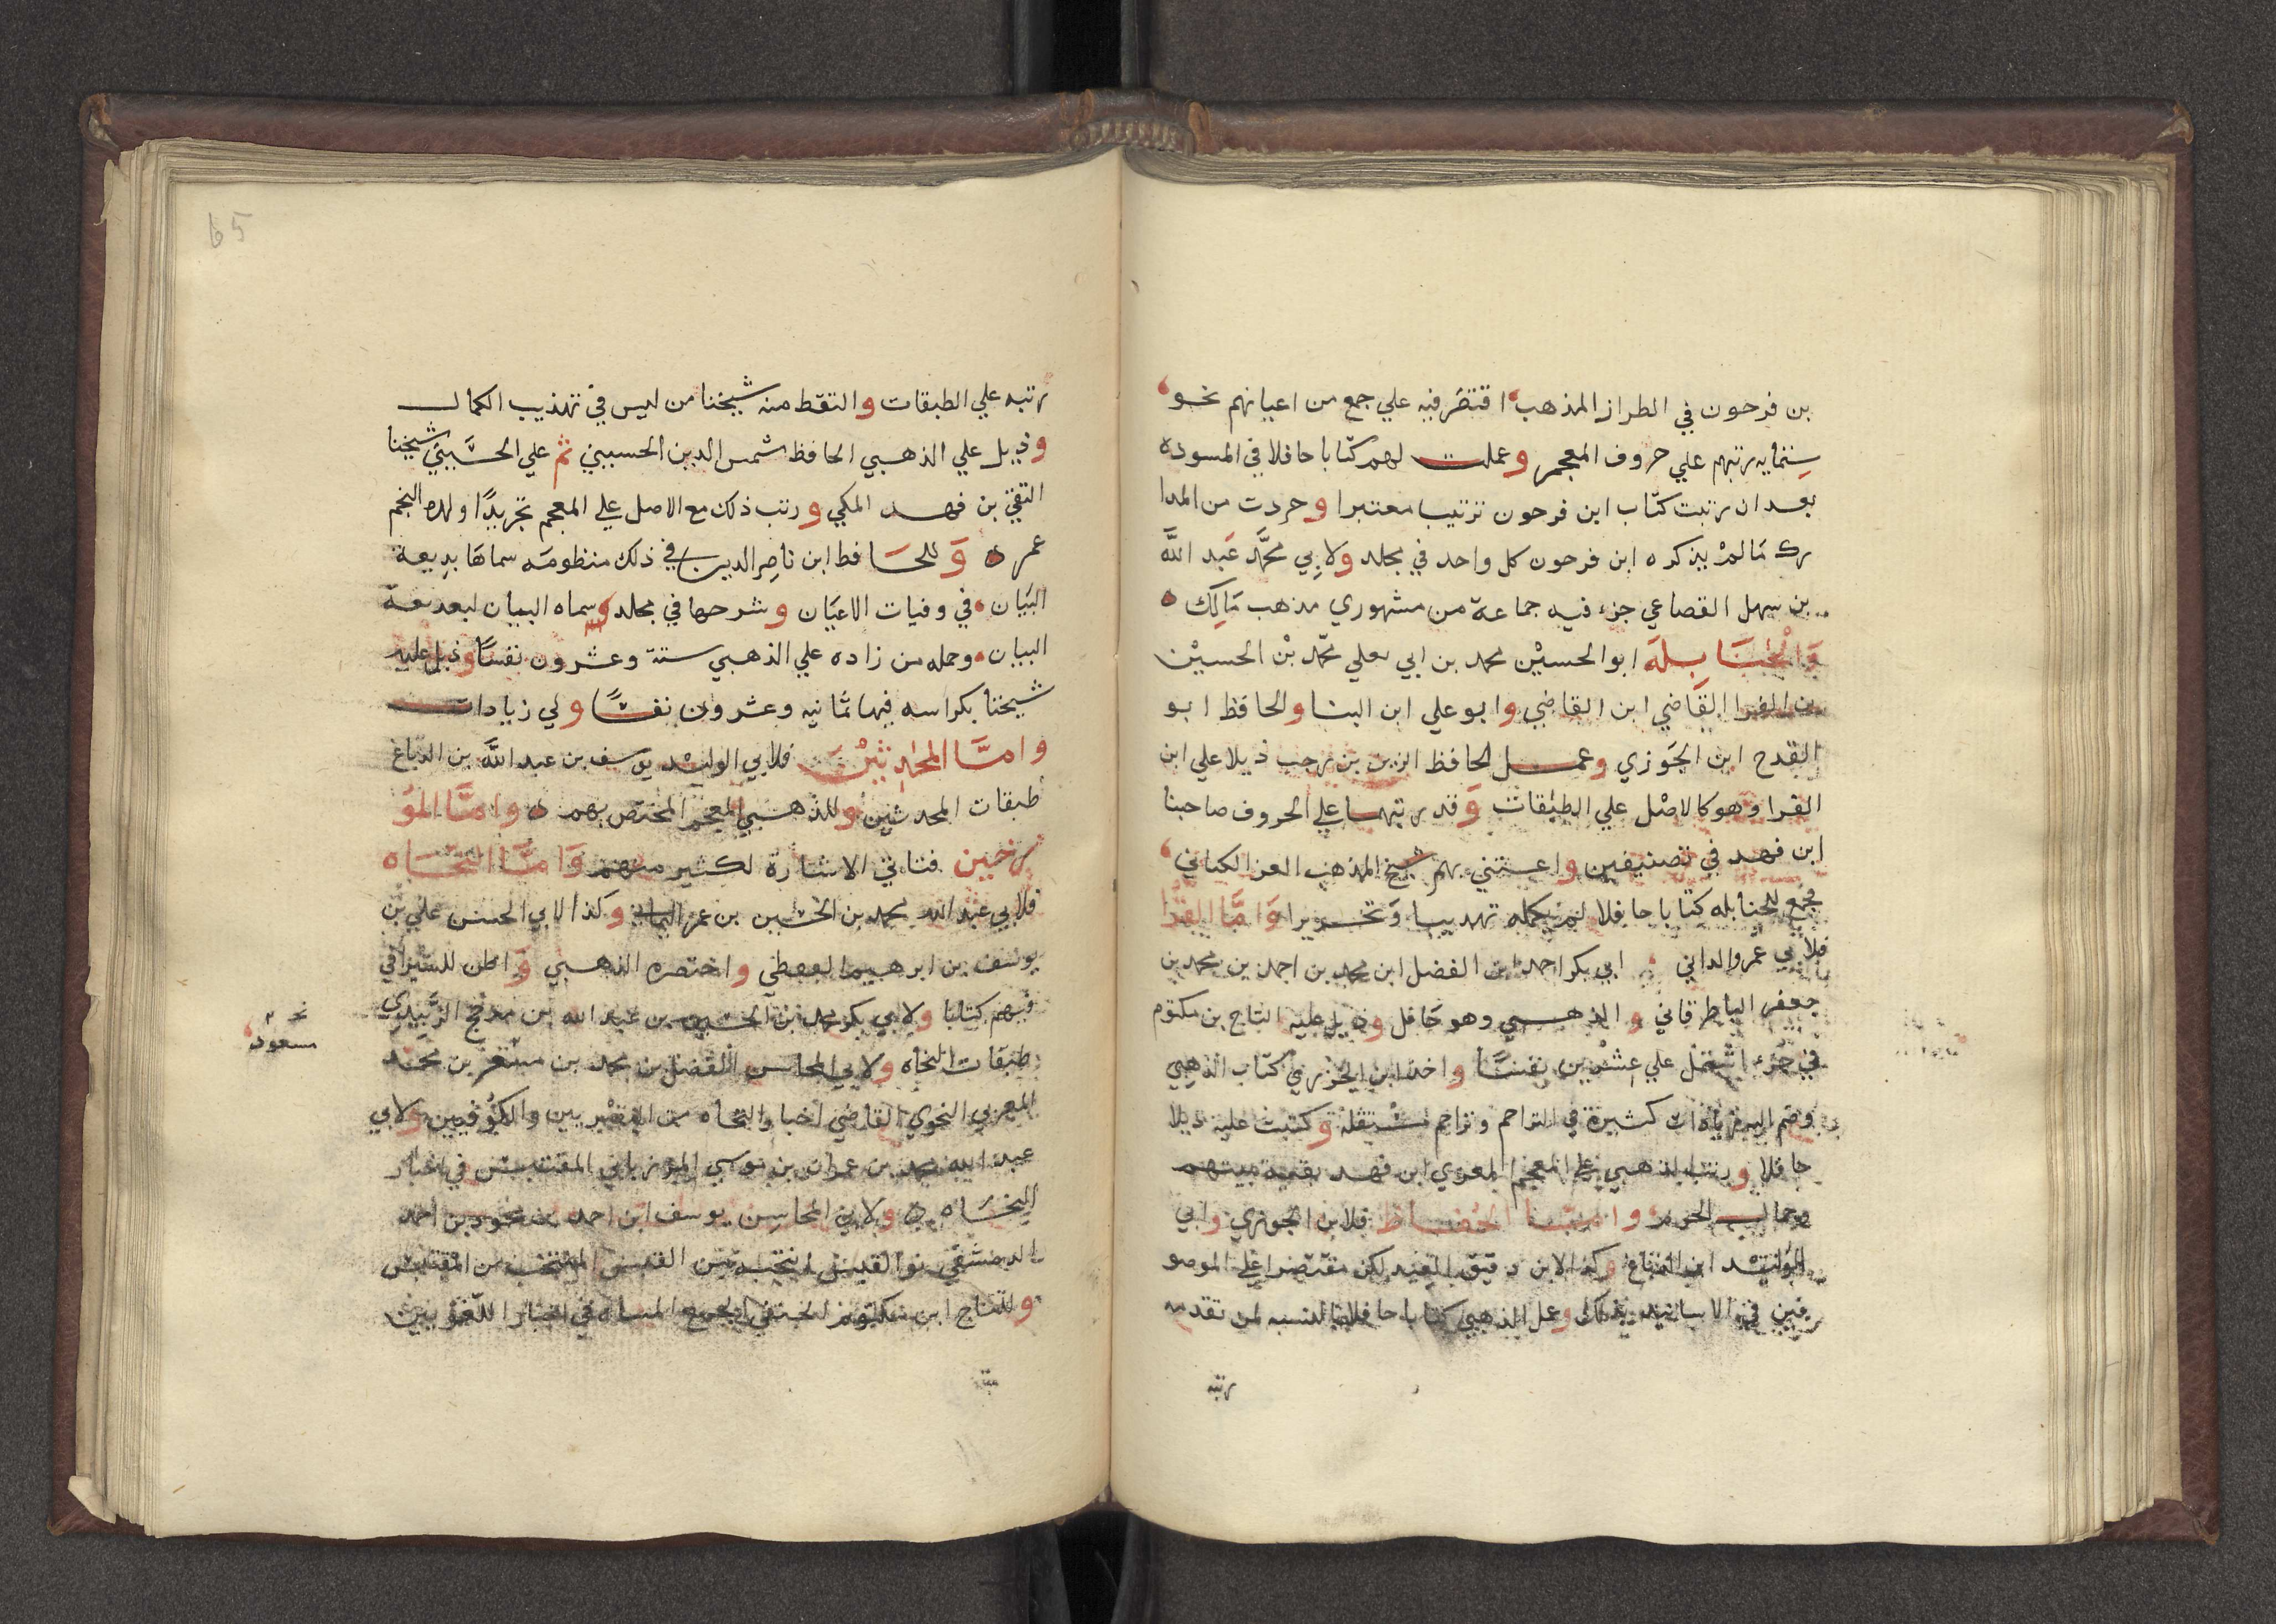 بن فرحون في الطراز المذهب اقتصر فيه علي جمع من اعيانهم نحو
ستمايه رتبهم علي حروف المعجم وعملت لهم كتابا حافلا في المسوده
بعد ان رتبت كتاب ابن فرحون ترتيبا معتبرا وجردت من المدا
رك مَا لمْ يذكره ابن فرحون كل واحد في مجلد ولابِي محمَّد عَبد اللَّه
بن سهل القضاعي جزء فيه جماعة من مشهوري مذهب مَالِك ه
وَالْحَنَابِلَة ابوالحسيْن محمد بن ابي يعلي محمّد بْن الحسيْن
بن الفرا القَاضي ابن القاضي وابو علي ابن البنا والحافظ ابو
الفرج ابن الجَوزي وعمل الحافظ الزين بن رجب ذيلا علي ابن
الفرا وهو كالاصْل علي الطبَقات وَقد رتبهما علي الحروف صاحبنا
ابن فهد في تصنيفين واعتني بهم شيخ المذهب العز الكناني
فجمع للحنابله كتابا حافلا لم يكمله تهذيبا وَتحريرا وَامَّا القرَّا
فلابي عَمرو الداني ابي بكر احمد ابن الفضل ابن محمد بن احمد بن محمد بن
جعفر الباطرقاني والذهبي وهو حَافل وذيل عليه التاج بن مكتوم
في جُزء اشتمل علي عِشرْين نفسًا واخذ ابن الجزري كتاب الذهبي
وضم اليه زيادات كثيرة في التراجم وتراجم مستقلة وكتبت عليه ذيلا
حافلا ورتب الذهبي علي المعجم المعزي ابن فهد بقية بيتهم
وجمال الحرم وامَّا الحُفاظ فلابن الجوزي وابي
الوليْد ابن الدباغ وكذا لابن دقيق العيد لكن مقتصرا علي الموصو
فين في الاسانيد بذلك وعمل الذهبي كتابا حافلا بالنسبه لمن تقدمه
رتبه
65
رتبه علي الطبقات والتقط منه شيخنا من ليس في تهذيب الكمال
وذيل علي الذهبي الحافظ شمس الدين الحسيني ثم علي الحسَيني شيخنا
التقي بن فهد المكي ورتب ذلك مع الاصل علي المعجم تجريدًا ولده النجم
عمر ه وَللحَافظ ابن ناصِر الدين في ذلك منظومَه سماهَا بدِيعة
البيَان في وفيات الاعيَان وشرحها في مجلد وسماه البيان لبديعة
البيان وجمله من زاده علي الذهبي ستة وعشرون نفسًا وذيل عليه
شيخنا بكراسه فيها ثمَانيه وعشرون نفسًا ولي زيادات
وامَّا المحَدِّثيْن فلابي الوليْد يوسف بن عبد اللَّه بن الدباغ
طبقات المحدثين وللذهبي المعجم المختص بهم ه وامَّا المؤ
رخين فتاتي الاشارة لكثير منهم وَامَّا النحَاه
فلابي عبد الله محمد بن الحسين بن عمر اليماني وكذا لابي الحسن علي بن
يوسف بن ابرهيم القفطي واختصره الذهبي وَاظن للسيرافي
فيهم كتابا ولابي بكر محمد بن الحسين بن عبد الله بن مدحج الزَبيدِي
طبقات النحاه ولابي المحاسن الفضل بن محمد بن مسعر بن محمد
المعري النحوي القاضي اخبار النحاه من البصْريين والكوُفيين ولابي
عبد الله محمد بن عمران بن موسي المرزباني المقتبس في اخبار
النحَاه ه ولابي المحاسِن يوسف ابن احمد بن محمود بن احمد
الدمشقي نور القبس انتخبه من القبس المنتخب من المقتبس
وللتاج ابن مكتوم الحنفي الجمع المتناه في اخبار اللّغويين
مسعود